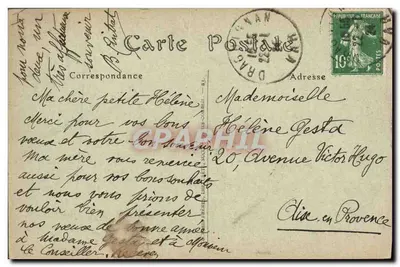 Carte Postale
Correspondance
Adresse
DRAGUIGNAN
VAR
REPUBLIQUE FRANÇAISE
10
Ma chère petite Hélène
Merci pour vos bons
voeux et notre bon souvenir
Ma mère vous remercie
aussi pour vos bons souhaits
et nous vous prions de
vouloir bien présenter
nos voeux de bonne année
à Madame et à Monsieur
le Conseiller,
pour nous
deux un
très affectueux
souvenir
Mademoiselle
Hélène Gesta
20, Avenue Victor Hugo
Aix en Provence